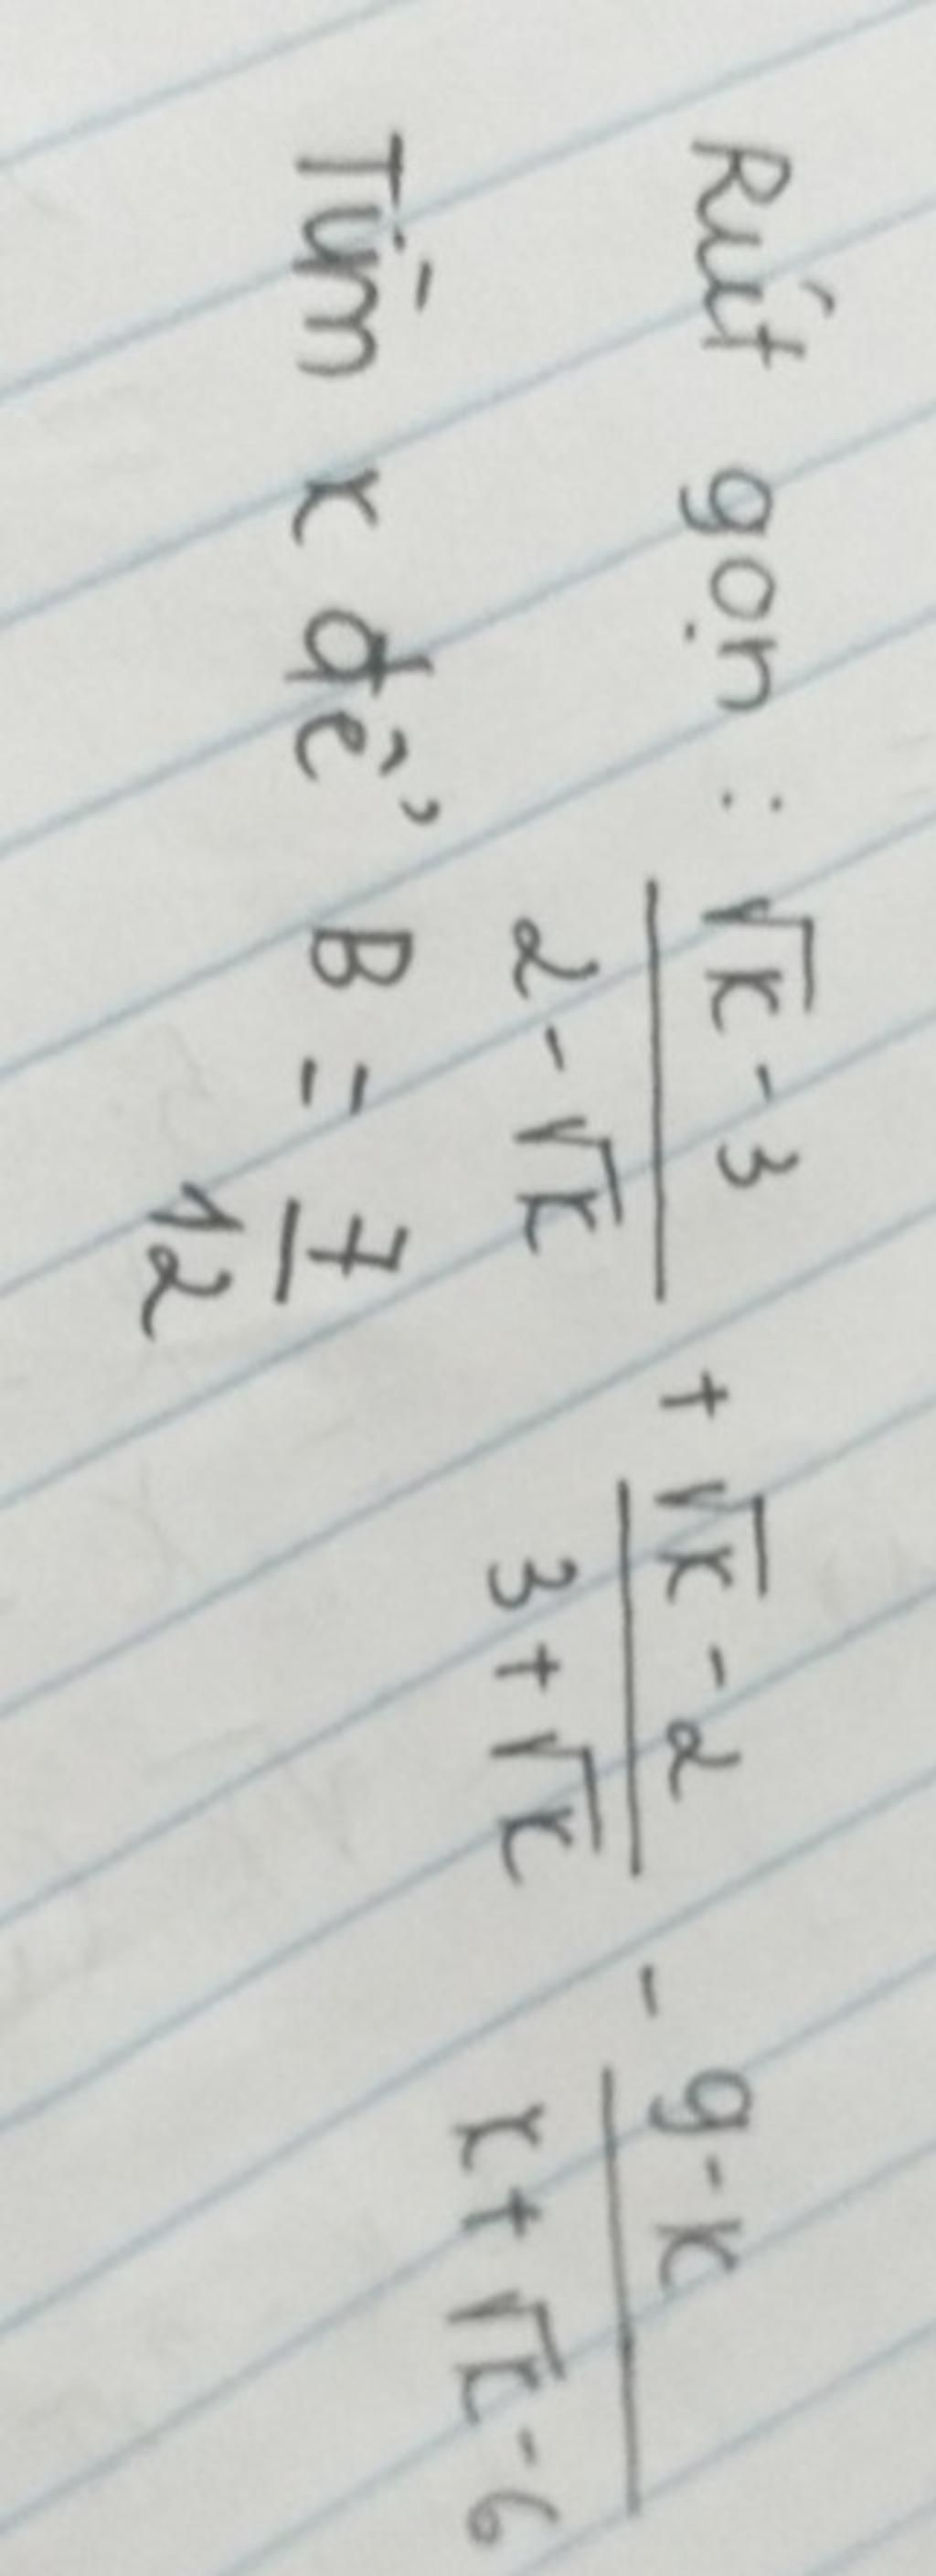 Rút gọn : \frac{\sqrt{x} - 3}{2 - \sqrt{x}} + \frac{\sqrt{x} - 2}{3 + \sqrt{x}} - \frac{9 - x}{x + \sqrt{x} - 6}
Tìm x để B = \frac{7}{12}